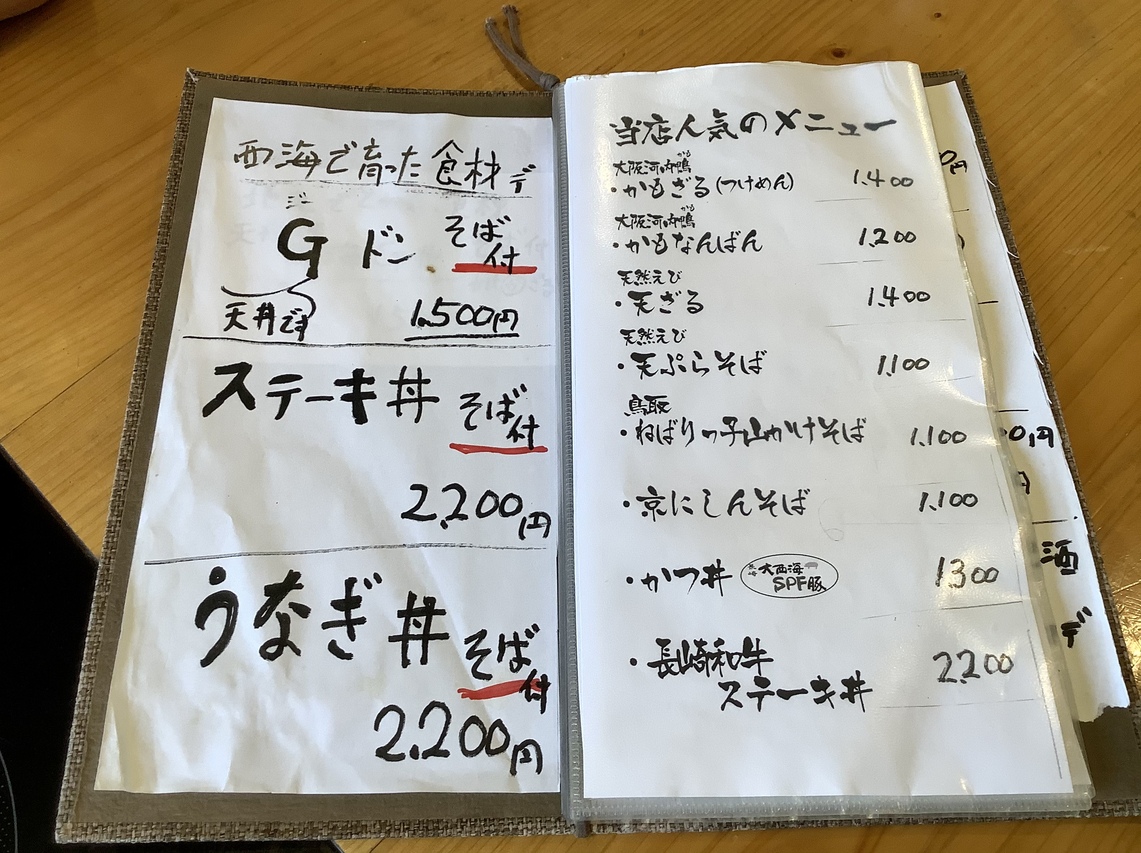 西海で育った食材デ
ジー
G ドン そば付
天丼です 1,500円
ステーキ丼 そば付
2,200円
うなぎ丼 そば付
2,200円
当店人気のメニュー
大阪河内鴨 かも
・かもざる(つけめん) 1,400
大阪河内鴨 かも
・かもなんばん 1,200
天然えび
・天ざる 1,400
天然えび
・天ぷらそば 1,100
鳥取
・ねばりっ子山かけそば 1,100
・京にしんそば 1,100
・かつ丼 長崎 大西海 SPF豚 1300
・長崎和牛
ステーキ丼 2,200
0円
0,円
円
酒
デ